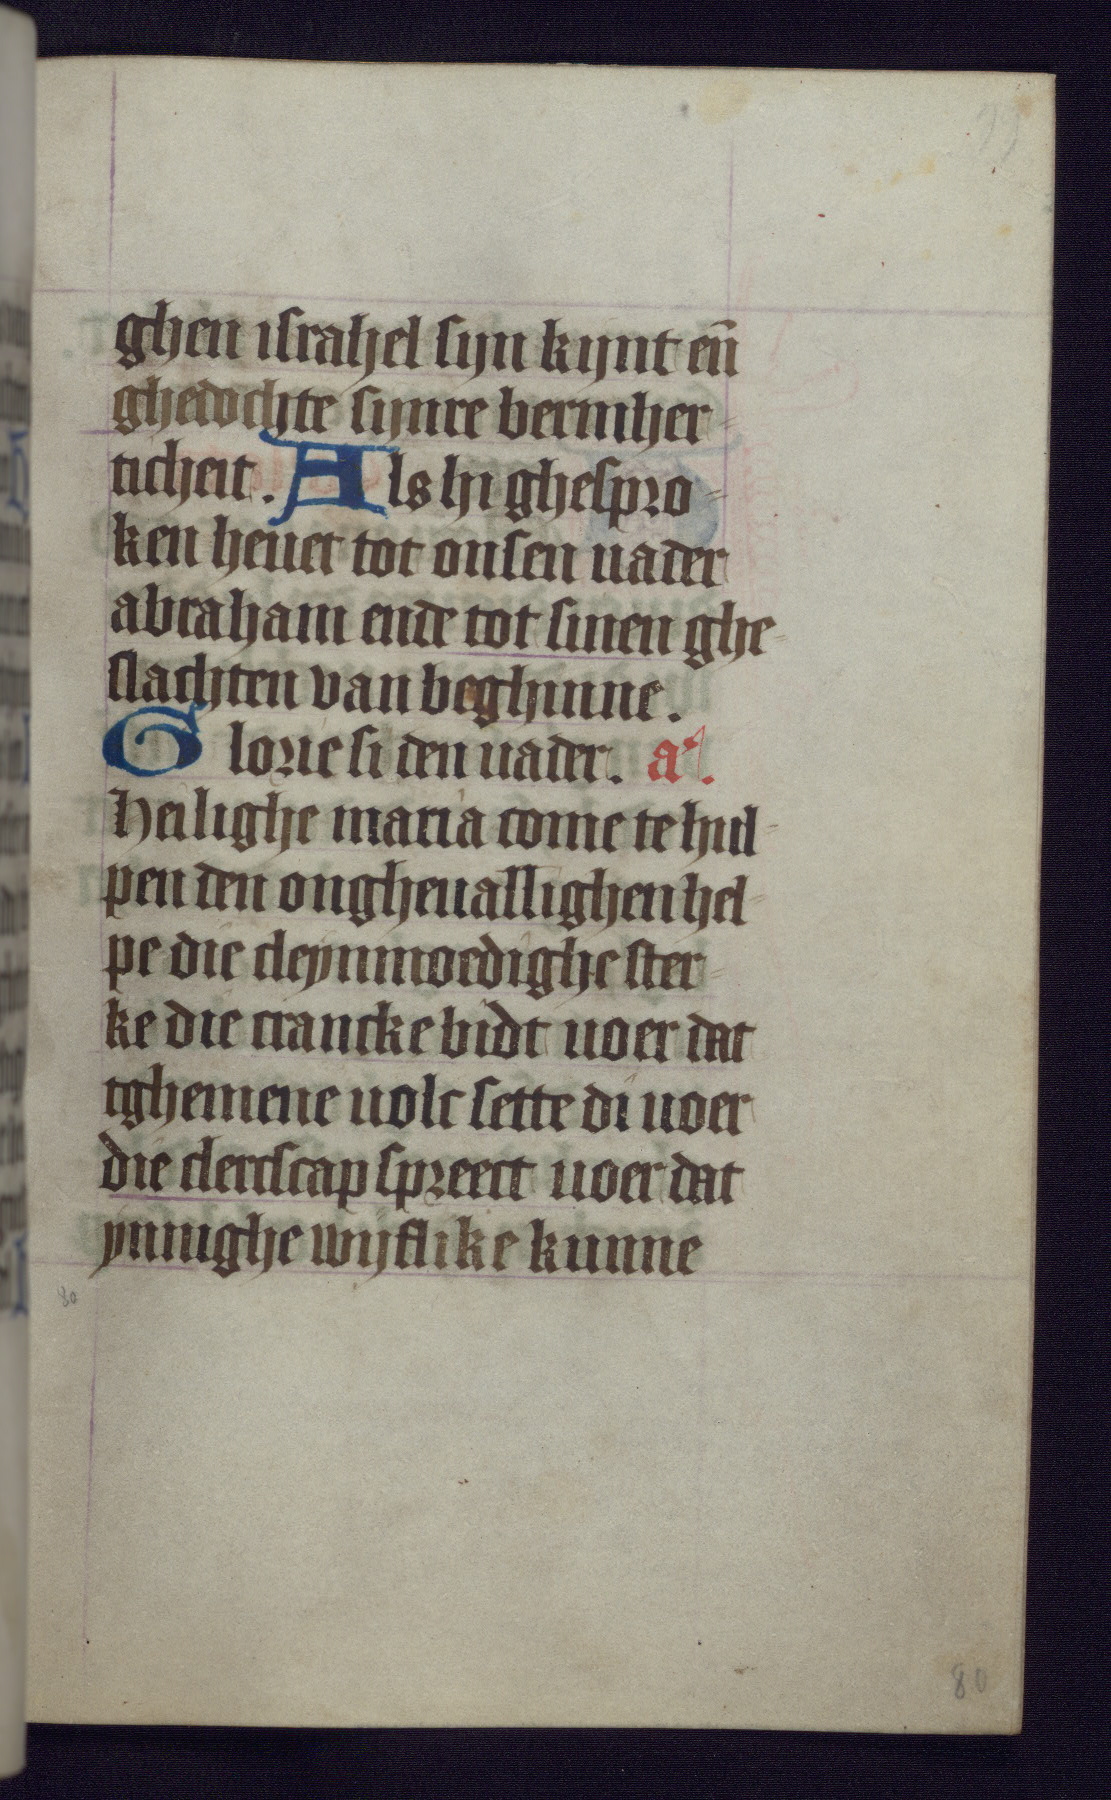 ghen israhel sijn kijnt en̄
ghedochte sijnre bermher
ticheit. Als hi ghespro
ken heuet tot onsen uader
abraham ende tot sinen ghe
slachten van beghinne.
Glorie si den uader. a͛.
Heilighe maria come te hul
pen den ongheuallighen hel
pe die cleynmoedighe ster
ke die crancke bidt uoer dat
tghemene uolc sette di uoer
die clercscap spreect uoer dat
ynnighe wijflike kunne
80
80